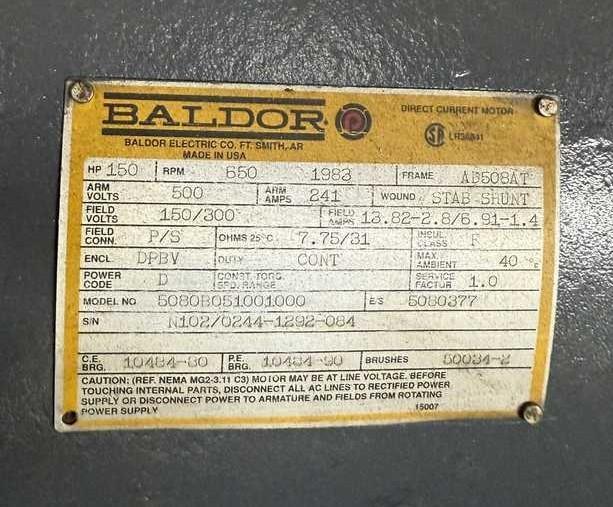 BALDOR
DIRECT CURRENT MOTOR
BALDOR ELECTRIC CO. FT. SMITH, AR
MADE IN USA
SA LR36841
HP 150 RPM 650 1983 FRAME AB508AT
ARM VOLTS 500 ARM AMPS 241 WOUND STAB SHUNT
FIELD VOLTS 150/300 FIELD AMPS 13.82-2.8/6.91-1.4
FIELD CONN. P/S OHMS 25°C 7.75/31 INSUL. CLASS F
ENCL DPBV DUTY CONT MAX. AMBIENT 40 °C
POWER CODE D CONST. TORQ. SPD. RANGE SERVICE FACTOR 1.0
MODEL NO 5080B051001000 E/S 5080377
S/N N102/0244-1292-084
C.E. BRG. 10484-80 P.E. BRG. 10484-90 BRUSHES 50034-2
CAUTION: (REF. NEMA MG2-3.11 C3) MOTOR MAY BE AT LINE VOLTAGE. BEFORE
TOUCHING INTERNAL PARTS, DISCONNECT ALL AC LINES TO RECTIFIED POWER
SUPPLY OR DISCONNECT POWER TO ARMATURE AND FIELDS FROM ROTATING
POWER SUPPLY 15007